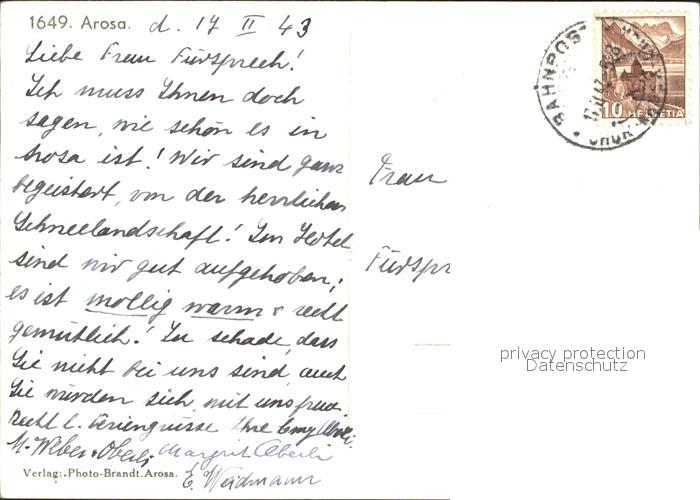 1649. Arosa. d. 17 II 43
Liebe Frau Fürsprech!
Ich muss Ihnen doch
sagen, wie schön es in
Arosa ist! Wir sind ganz
begeistert, von der herrlichen
Schneelandschaft! Im Hotel
sind wir gut aufgehoben;
es ist mollig warm & recht
gemütlich! Zu schade, dass
Sie nicht bei uns sind, auch
Sie würden sich mit uns freuen.
Recht l. Feriengrüsse Ihre Emmy
M. Weber-Oberli Margrit Oberli
E. Weidmann
Verlag: Photo-Brandt. Arosa.
Frau
Fürspr
BAHNPOST
CHUR
10 HELVETIA
privacy protection
Datenschutz